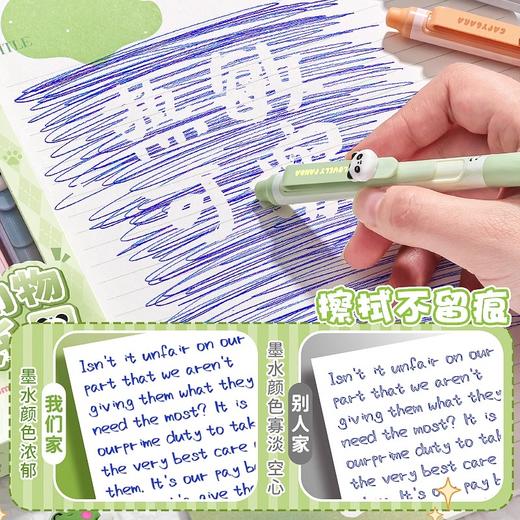 CAPYBARA
热的
可擦
LOVELY PANDA
物
擦拭不留痕
墨水颜色浓郁
我们家
Isn't it unfair on our
part that we aren't
giving them what they
need the most? It is
ourprime duty to tak
the very best care
them. It's our pay b
墨水颜色寡淡 空心
别人家
Isn't it unfair on our
part that we aren't
giving them what they
need the most? It is
ourprime duty to tak
the very best care
them. It's our pay b